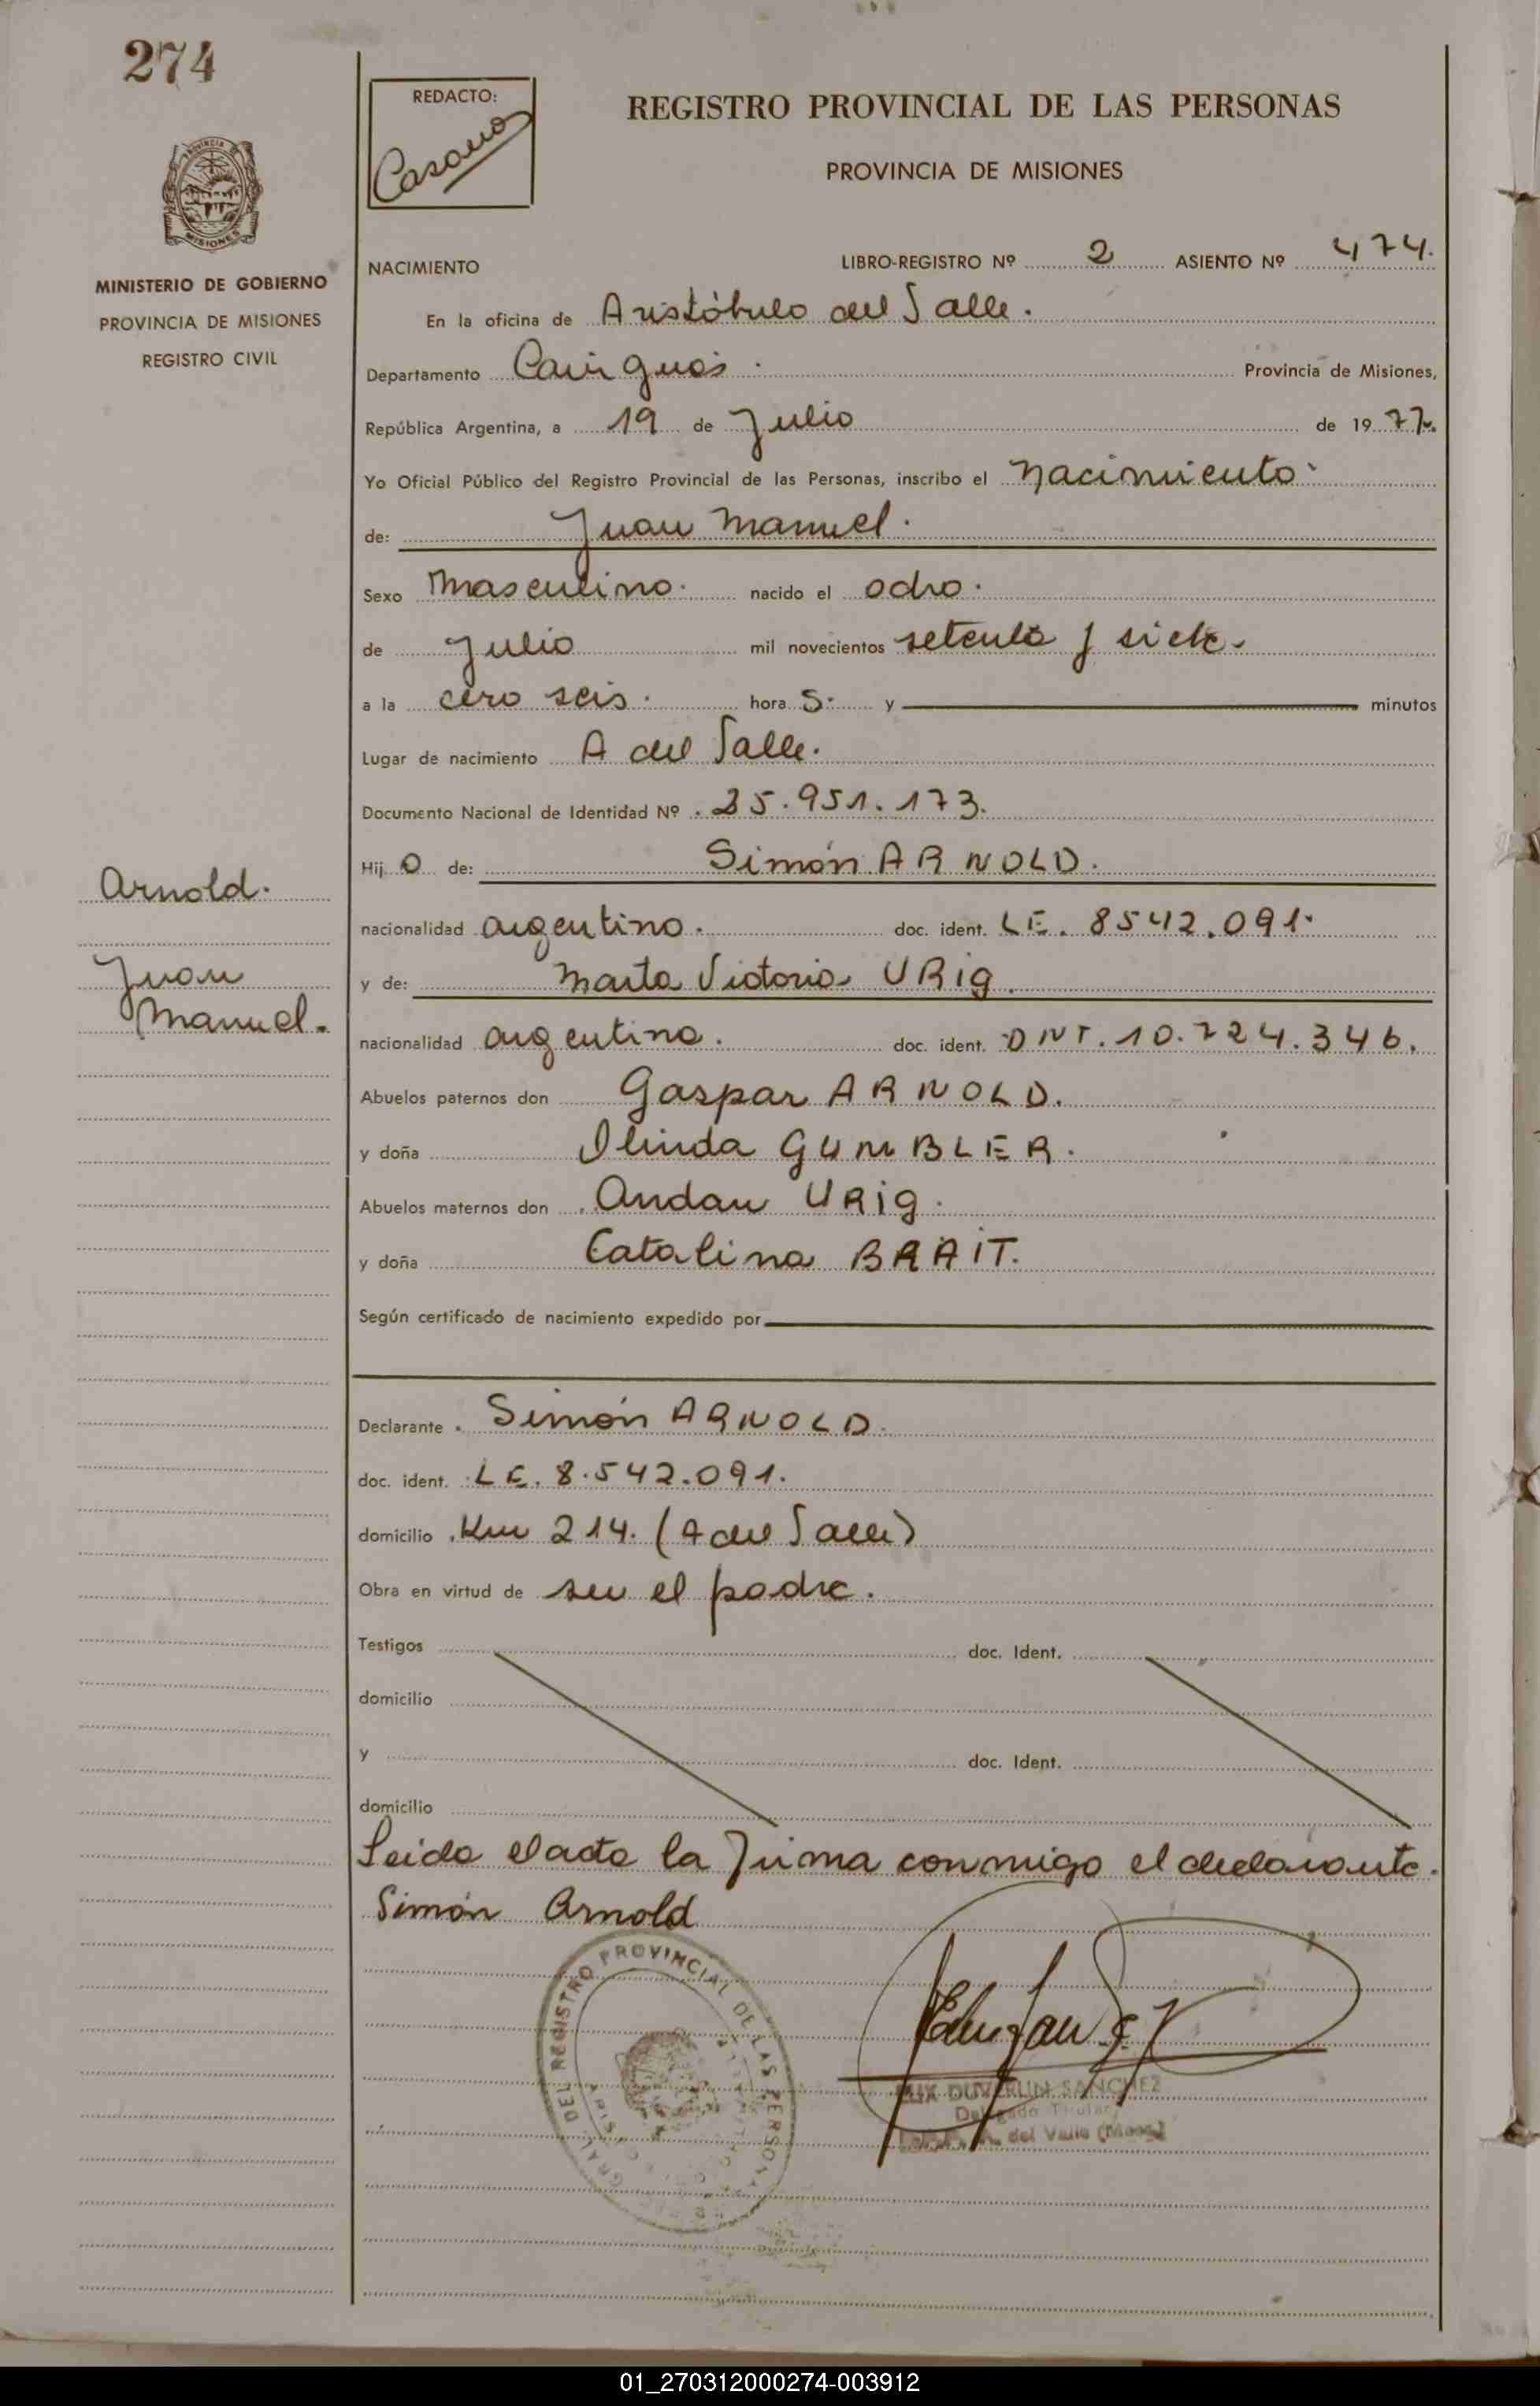 274
REDACTO:
Casano
REGISTRO PROVINCIAL DE LAS PERSONAS
PROVINCIA DE MISIONES
PROVINCIA DE
MISIONES
MINISTERIO DE GOBIERNO
PROVINCIA DE MISIONES
REGISTRO CIVIL
NACIMIENTO LIBRO-REGISTRO Nº 2 ASIENTO Nº 474.
En la oficina de Aristóbulo del Valle.
Departamento Cainguás. Provincia de Misiones,
República Argentina, a 19 de Julio de 1977.
Yo Oficial Público del Registro Provincial de las Personas, inscribo el nacimiento
de: Juan Manuel.
Sexo Masculino. nacido el ocho.
de Julio mil novecientos setenta y siete.
a la cero seis. hora s. y minutos
Lugar de nacimiento A del Valle.
Documento Nacional de Identidad Nº 25.951.173.
Hij o de: Simón ARNOLD.
Arnold.
nacionalidad argentino. doc. ident. LE. 8542.091.
Juan
y de: Marta Victoria URig.
Manuel.
nacionalidad argentina. doc. ident. DNI. 10.724.346.
Abuelos paternos don Gaspar ARNOLD.
y doña Olinda GUMBLER.
Abuelos maternos don Andau URig.
y doña Catalina BRAIT.
Según certificado de nacimiento expedido por
Declarante Simón ARNOLD.
doc. ident. LE. 8.542.091.
domicilio Km 214. (A del Valle)
Obra en virtud de ser el padre.
Testigos doc. Ident.
domicilio
y doc. Ident.
domicilio
Leida el acta la firma conmigo el declarante.
Simón Arnold
REGISTRO PROVINCIAL DE LAS PERSONAS
DUVERLIN SANCHEZ
Delegado Titular
A. del Valle (Mnes)
01_270312000274-003912